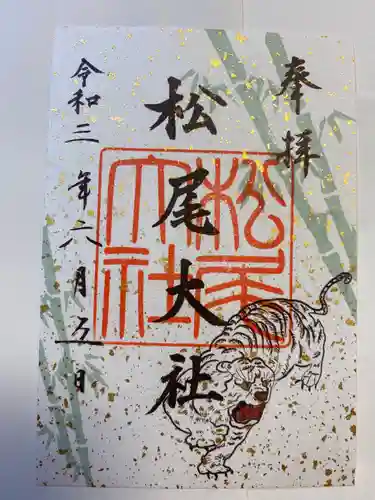 奉拝
松尾大社
令和三年六月五日
松尾
大社